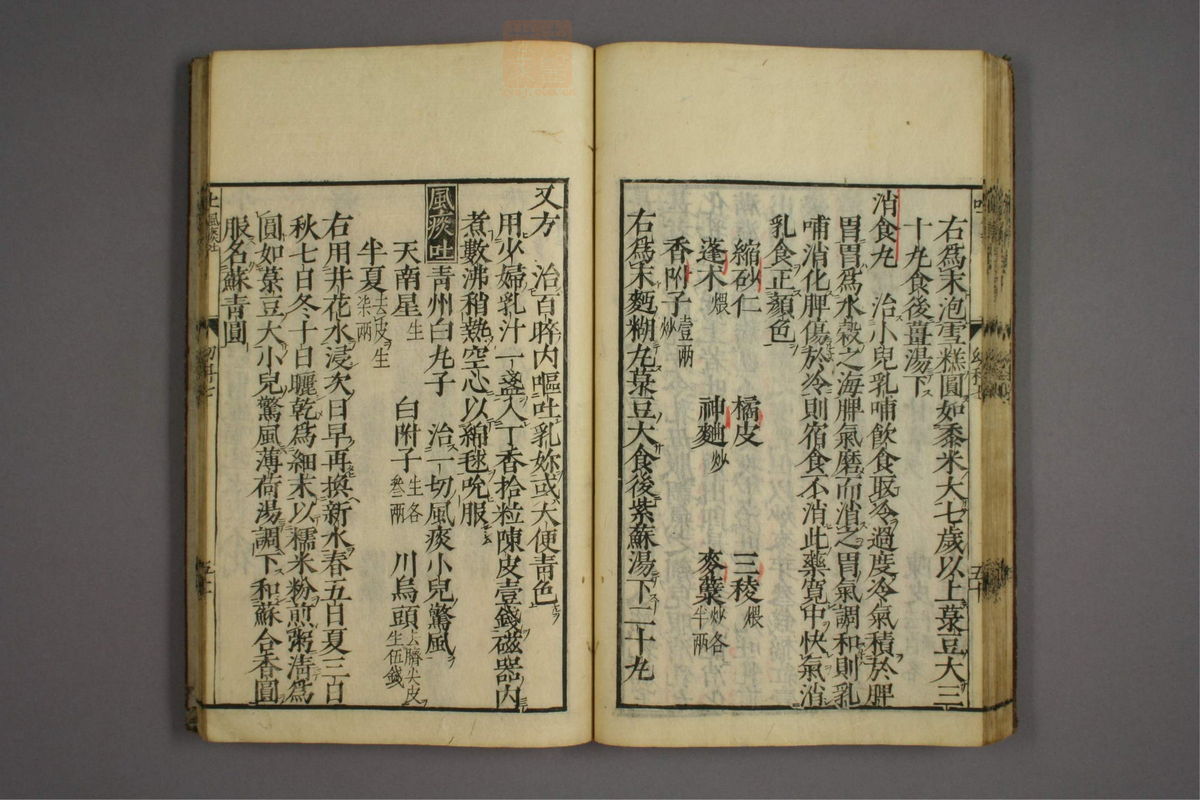 右爲末泡雪糕圓如黍米大七歲以上菉豆大三
十丸食後薑湯下
消食丸　治小兒乳哺飲食取冷過度冷氣積於脾
胃胃爲水穀之海脾氣磨而消之胃氣調和則乳
哺消化脾傷於冷則宿食不消此藥寬中快氣消
乳食正顏色
縮砂仁　橘皮　三稜煨
蓬木煨　神麯炒　麥蘗炒各半兩
香附子炒壹兩
右爲末麵糊丸菉豆大食後紫蘇湯下二十丸
又方　治百晬内嘔吐乳妳或大便青色
用少婦乳汁一盞入丁香拾粒陳皮壹錢磁器内
煮數沸稍熱空心以綿毬吮服
風痰吐　青州白丸子　治一切風痰小兒驚風
天南星生　白附子生各叁兩　川烏頭去臍尖皮生伍錢
半夏去皮生柒兩
右用井花水浸次日早再換新水春五日夏三日
秋七日冬十日曬乾爲細末以糯米粉煎粥清爲
圓如菉豆大小兒驚風薄荷湯調下和蘇合香圓
服名蘇青圓